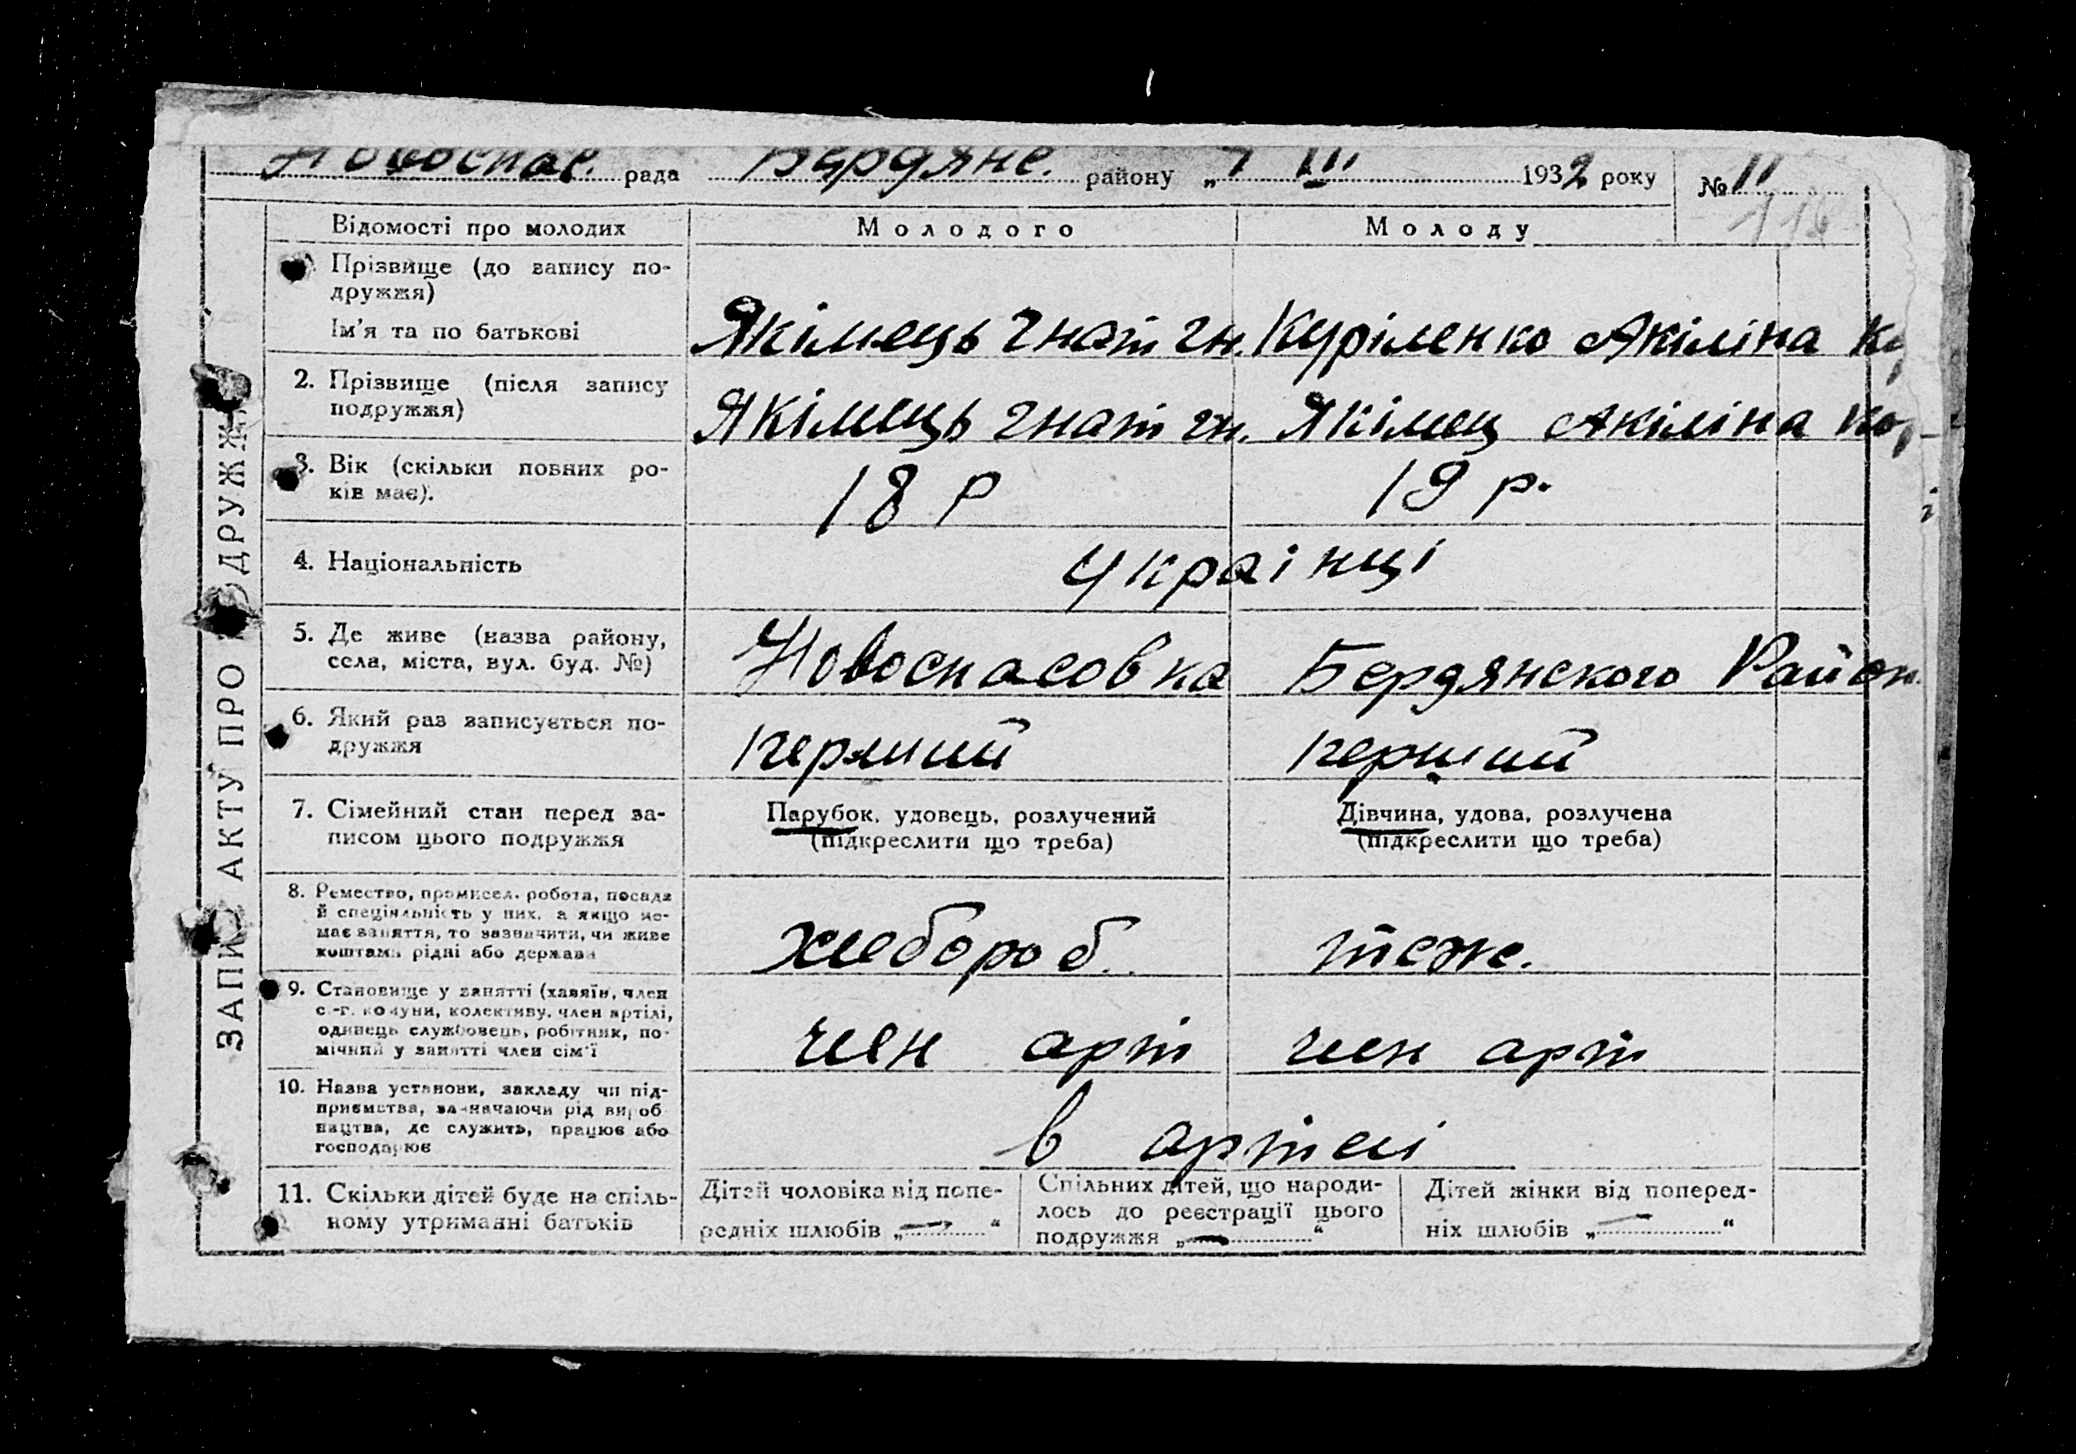 Новоспас. рада Бердянс. району „7 III 1932 року № 11
Відомості про молодих Молодого Молоду
Прізвище (до запису по-
дружжя)
Ім'я та по батькові
Якімець Гнат Гн. Куріленко Акіліна
2. Прізвище (після запису
подружжя)
Якімець Гнат Гн. Якімец Акіліна Кор
3. Вік (скільки повних ро-
ків має).
18 р 19 р.
4. Національність
Українці
5. Де живе (назва району,
села, міста, вул. буд. №)
Новоспасовка Бердянского Район
6. Який раз записується по-
дружжя
перший перший
7. Сімейний стан перед за-
писом цього подружжя
Парубок, удовець, розлучений
(підкреслити що треба)
Дівчина, удова, розлучена
(підкреслити що треба)
8. Ремество, промисел, робота, посада
й спеціяльність у них, а якщо не-
має заняття, то зазначити, чи живе
коштами рідні або держави
хлебороб. теже.
9. Становище у занятті (хазяїн, член
с.-г. комуни, колективу, член артілі,
одинець службовець, робітник, по-
мічний у занятті член сім'ї
член арт член арт
10. Назва установи, закладу чи під-
приємства, зазначаючи рід вироб
ництва, де служить, працює або
господарює
в артелі
11. Скільки дітей буде на спіль-
ному утриманні батьків
Дітей чоловіка від попе-
редніх шлюбів „—“
Спільних дітей, що народи-
лось до реєстрації цього
подружжя „—“
Дітей жінки від поперед-
ніх шлюбів „—“
ЗАПИС АКТУ ПРО ОДРУЖ